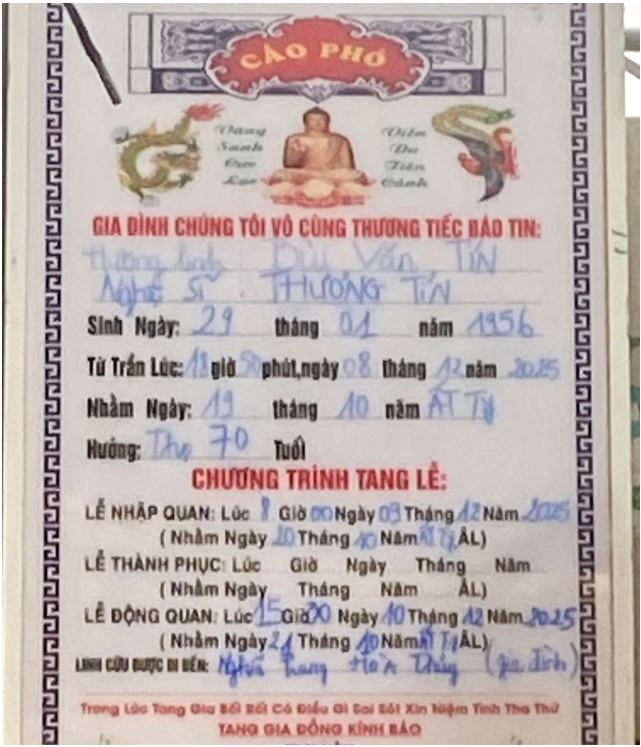 CÁO PHÓ
Vãng
Sanh
Cực
Lạc
Viên
Du
Tiên
Cảnh
GIA ĐÌNH CHÚNG TÔI VÔ CÙNG THƯƠNG TIẾC BÁO TIN:
Hương linh Bùi Văn Tín
Nghệ Sĩ. THƯƠNG TÍN
Sinh Ngày: 29 tháng 01 năm 1956
Từ Trần Lúc: 18 giờ 50 phút,ngày 08 tháng 12 năm 2025
Nhằm Ngày: 19 tháng 10 năm ẤT Tỵ
Hưởng: Thọ 70 Tuổi
CHƯƠNG TRÌNH TANG LỄ:
LỄ NHẬP QUAN: Lúc 8 Giờ 00 Ngày 09 Tháng 12 Năm 2025
( Nhằm Ngày 20 Tháng 10 Năm ẤT Tỵ ÂL)
LỄ THÀNH PHỤC: Lúc Giờ Ngày Tháng Năm
( Nhằm Ngày Tháng Năm ÂL)
LỄ ĐỘNG QUAN: Lúc 15 Giờ 30 Ngày 10 Tháng 12 Năm 2025
( Nhằm Ngày 21 Tháng 10 Năm ẤT Tỵ ÂL)
LINH CỮU ĐƯỢC DI ĐẾN: Nghĩa Trang Hoà Thủy (gia đình)
Trong Lúc Tang Gia Bối Rối Có Điều Gì Sai Sót Xin Niệm Tình Tha Thứ
TANG GIA ĐỒNG KÍNH BÁO